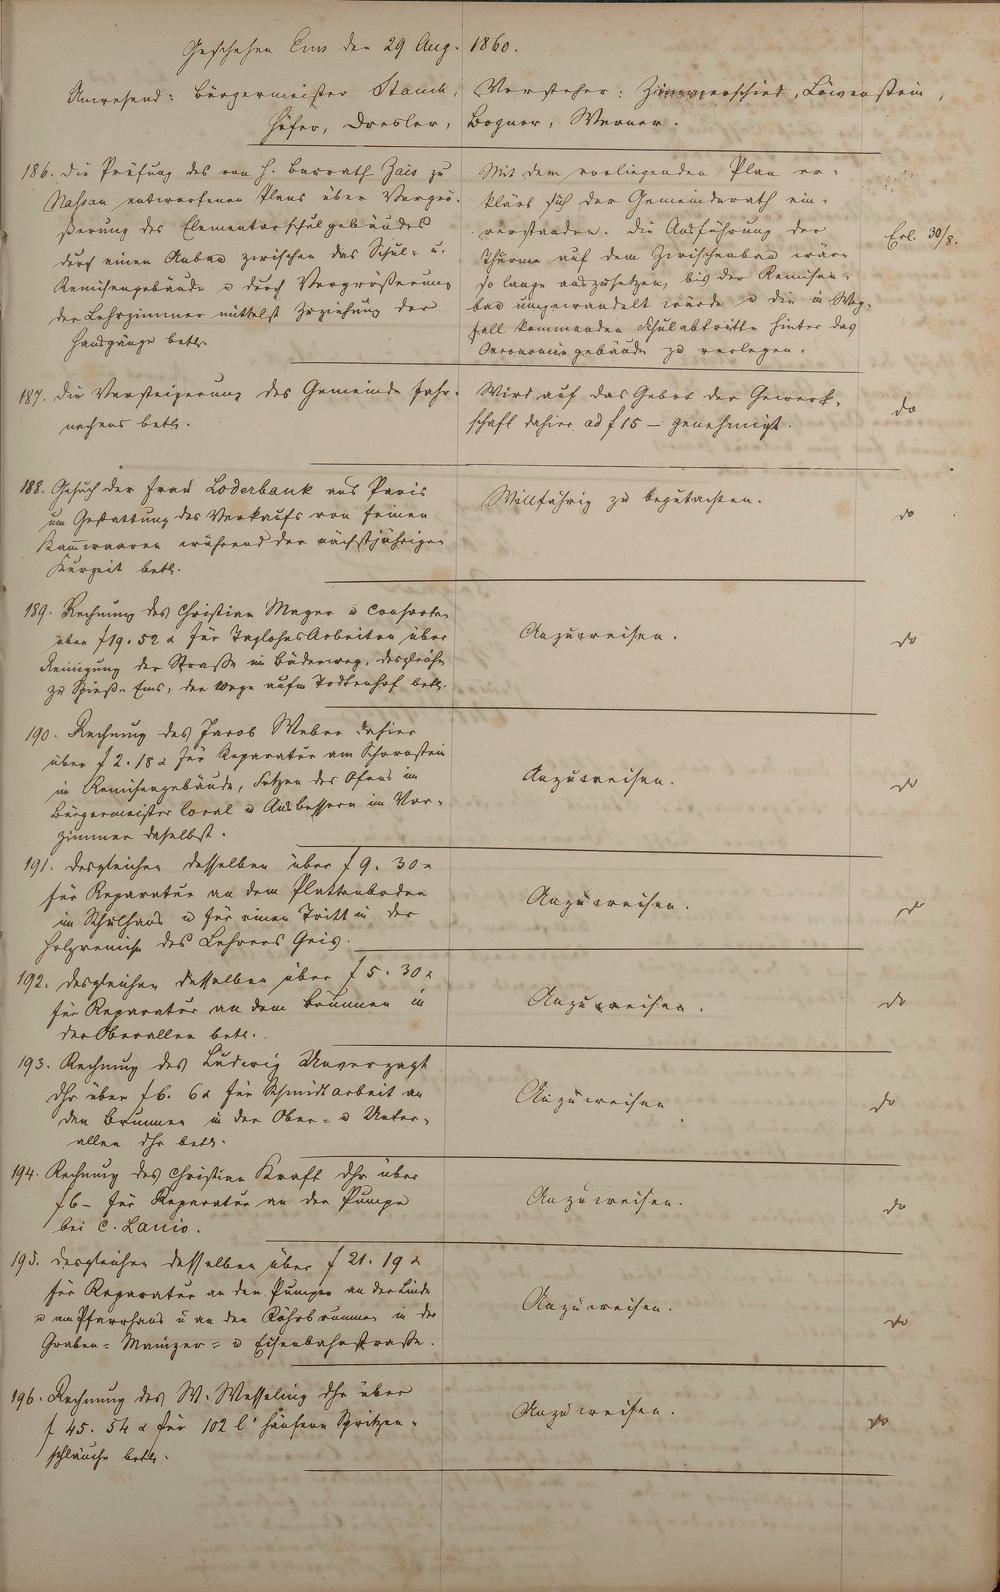 Geschehen Ems den 29 Aug. 1860.
Anwesend: Bürgermeister Stauch, Vorsteher: Zimmerschied, Löwenstein,
Höfer, Dresler, Bogner, Werner.
186. Die Prüfung des von H. Baurath Zais zu
Nassau entworfenen Planes über Vergrö-
ßerung des Elementarschulgebäudes
durch einen Anbau zwischen das Schul- u.
Remisengebäude u durch Vergrößerung
der Lehrzimmer mittelst Zuziehung der
Hausgänge betr.
Mit dem vorliegenden Plan er-
klärt sich der Gemeinderath ein-
verstanden. Die Ausführung der
Thürme auf dem Zwischenbau wäre
so lange auszusetzen, bis der Remisen-
bau umgewandelt würde u die in Weg-
fall kommenden Schulabtritte hinter das
Oeconomiegebäude zu verlegen.
Erl. 30/8.
187. Die Versteigerung des Gemeinde Fahr-
nachens betr.
Wird auf das Gebot der Gewerk-
schaft dahier ad f 15 — genehmigt.
do
188. Gesuch der Frau Loderbank aus Paris
um Gestattung des Verkaufs von feinen
Kam̅waaren während der nächstjährigen
Kurzeit betr.
Willfährig zu begutachten.
do
189. Rechnung des Christian Mayer u Consorten
über f 19. 52 x für Taglohns Arbeiten über
Reinigung der Straße im Bäderweg, desgleichen
zu Spieß-Ems, der Wege aufm Todtenhof betr.
Anzuweisen.
do
190. Rechnung des Jacob Weber dahier
über f 2. 18 x für Reparatur am Schornstein
im Remisengebäude, Setzen des Ofens im
Bürgermeister local u Ausbessern im Vor-
zimmer daselbst.
Anzuweisen.
do
191. Desgleichen desselben über f 9. 30 x
für Reparatur an dem Plattenboden
im Schulhaus u für einen Tritt in der
Holzremise des Lehrers Geis.
Anzuweisen.
do
192. Desgleichen desselben über f 5. 30 x
für Reparatur an dem Brunnen in
der Oberallee betr.
Anzuweisen.
do
193. Rechnung des Ludwig Unverzagt
dhr über f 6. 6 x für Schmidtarbeit an
den Brunnen in der Ober- u Unter-
allee dhr betr.
Anzuweisen
do
194. Rechnung des Christian Kraft dhr über
f 6 — für Reparatur an der Pumpe
bei C. Lanio.
Anzuweisen.
do
195. Desgleichen desselben über f 21. 19 x
für Reparatur an den Pumpen an der Linde
u am Pfarrhaus u an den Röhrbrunnen in der
Graben- Mainzer- u Eisenbahnstraße.
Anzuweisen.
do
196. Rechnung des W. Wesseling dhr über
f 45. 54 x für 102 l' hänfene Spritzen-
schläuche betr.
Anzuweisen.
do